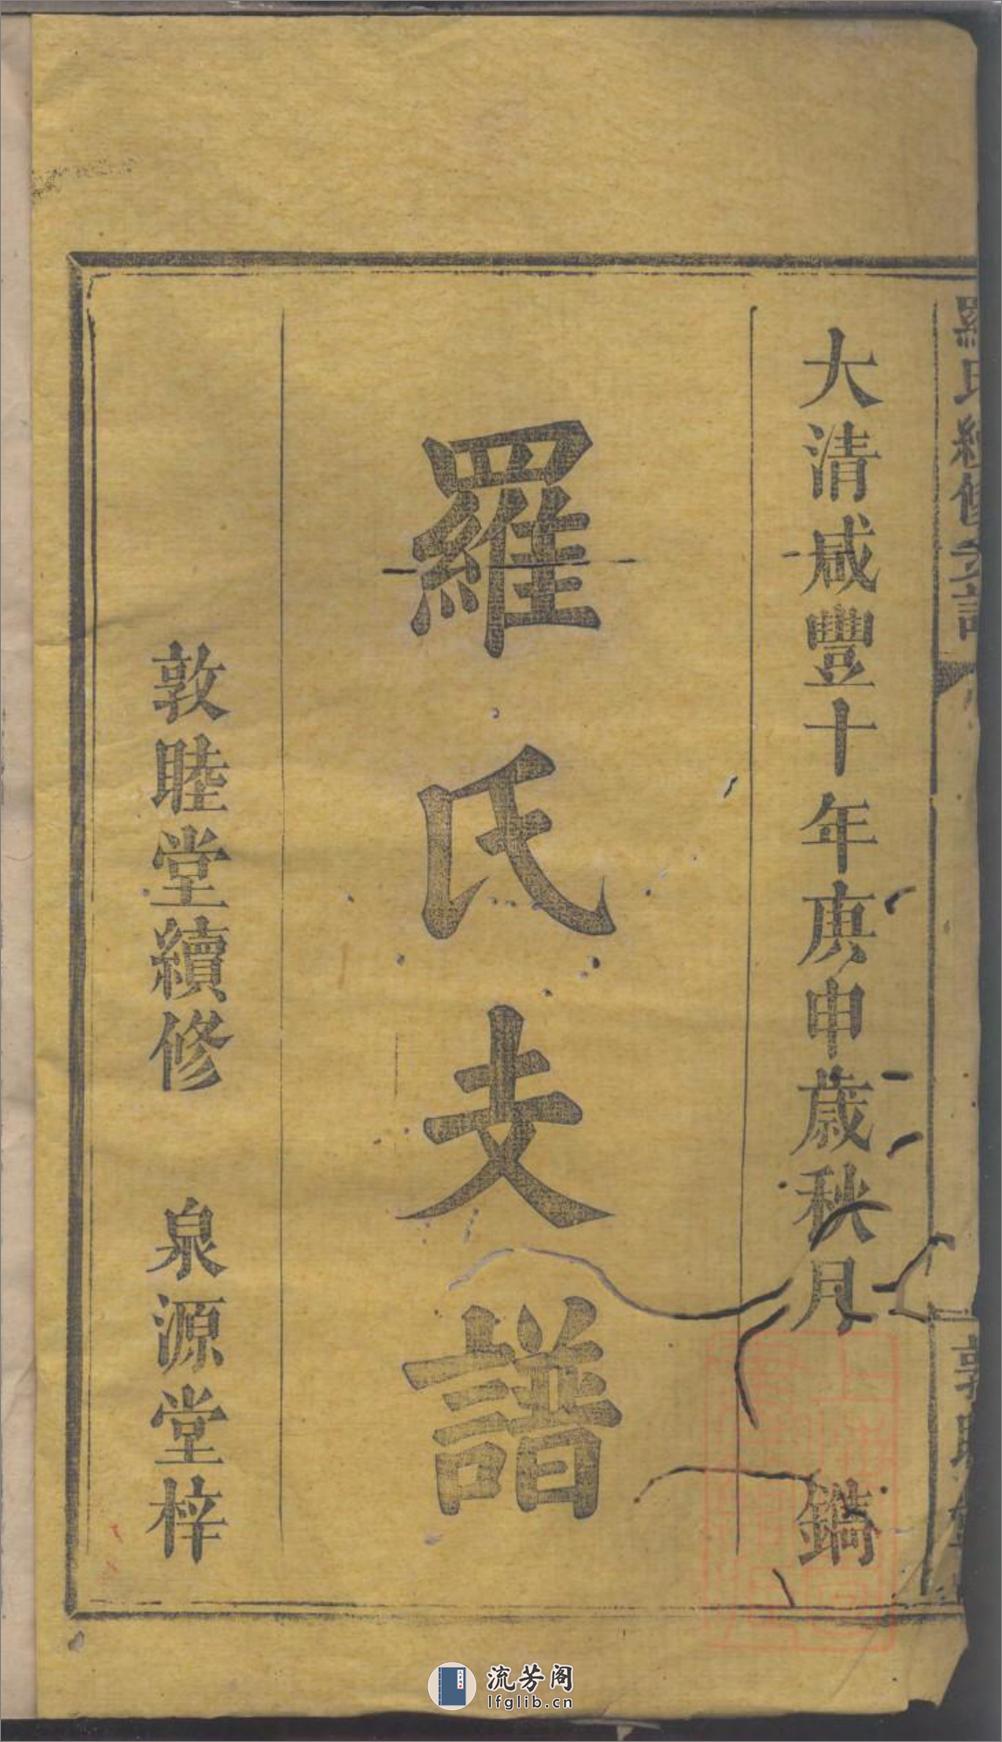 羅氏續修支譜
敦睦堂
大清咸豐十年庚申歲秋月 鐫
羅氏支譜
敦睦堂續修 泉源堂梓
流芳阁
lfglib.cn